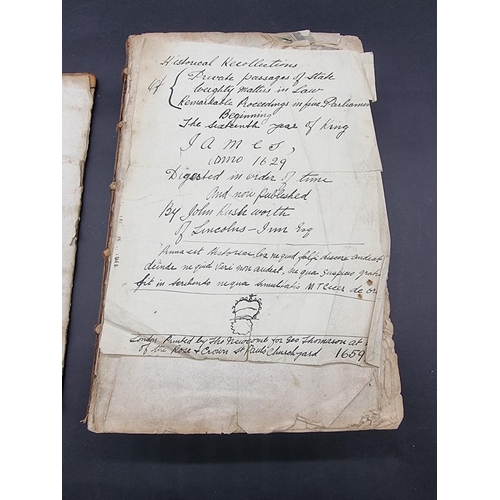 Historical Recollections
Of { Private passages of State
Weighty matters in Law
Remarkable Proceedings in five Parliamen
Beginning
The sixteenth year of King
JAMES,
1629
Digested in order of time
And now published
By John Rushworth
of Lincolns-Inn Esq
Prima est Historiae lex ne quid falsi discere audeat
deinde ne quid Veri non audeat, ne qua suspicio grat
sit in ne qua simultatis M T Cicer de or
London Printed by Tho Newcomb for Geo Thomason at
of the Rose & Crown St Pauls Churchyard 1659